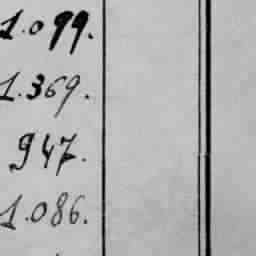 1.099.
1.369.
947.
1.086.